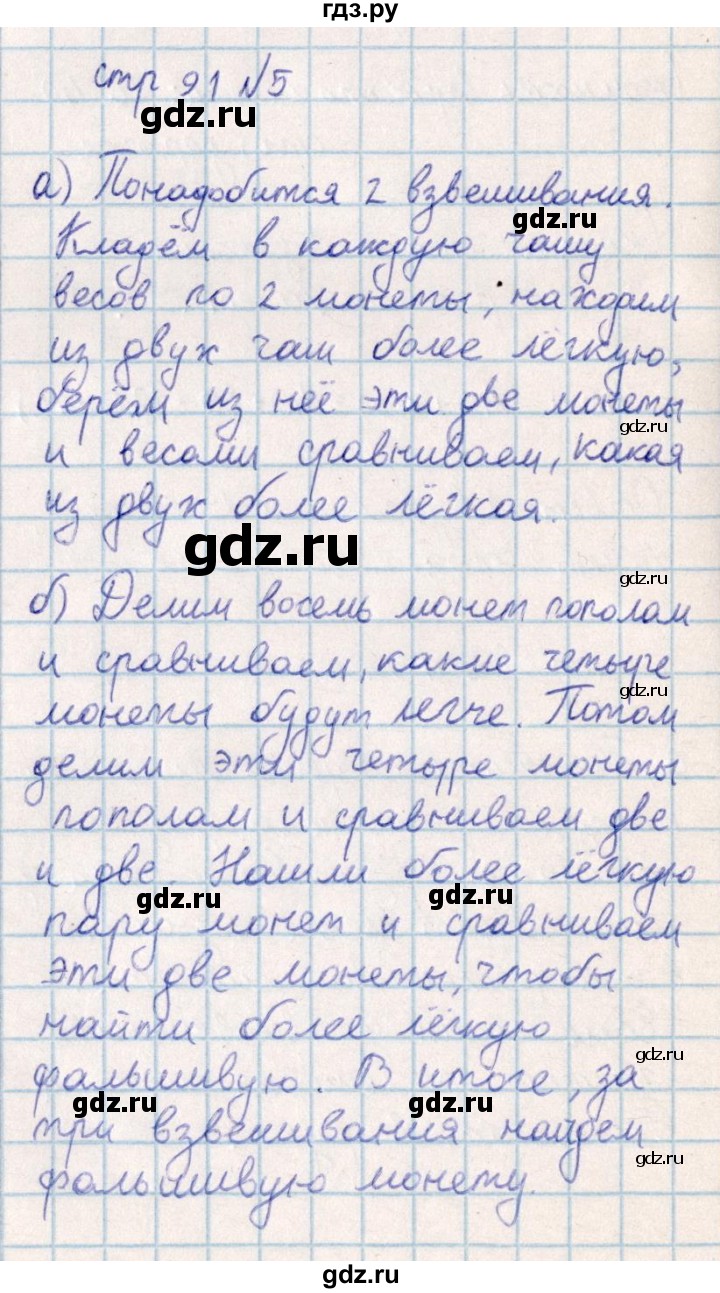 гдз.ру
стр 91 №5
gdz.ru
а) Понадобится 2 взвешивания.
gdz.ru
Кладём в каждую чашу
весов по 2 монеты, находим
из двух чаш более лёгкую,
берём из неё эти две монеты
gdz.ru
и весами сравниваем, какая
из двух более лёгкая.
gdz.ru
gdz.ru
б) Делим восемь монет пополам
и сравниваем, какие четыре
gdz.ru
монеты будут легче. Потом
делим эти четыре монеты
пополам и сравниваем две
и две. Нашли более лёгкую
gdz.ru gdz.ru
пару монет и сравниваем
эти две монеты, чтобы
найти более лёгкую
gdz.ru
фальшивую. В итоге, за
gdz.ru gdz.ru
три взвешивания найдем
gdz.ru
фальшивую монету.
gdz.ru